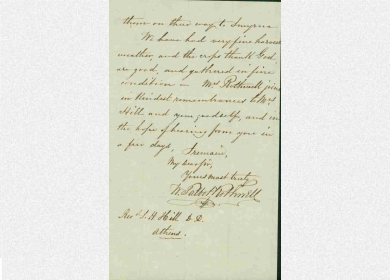 them on their way to Smyrna
We have had very fine harvest
weather, and the crops thank God,
are good, and gathered in fine
condition — Mrs Rothwell joins
in kindest remembrances to Mrs
Hill and your good self, and in
the hope of hearing from you in
a few days, I remain,
My dear Sir,
Yours most truly
Rothwell
Revd J. H. Hill D.D.
Athens.